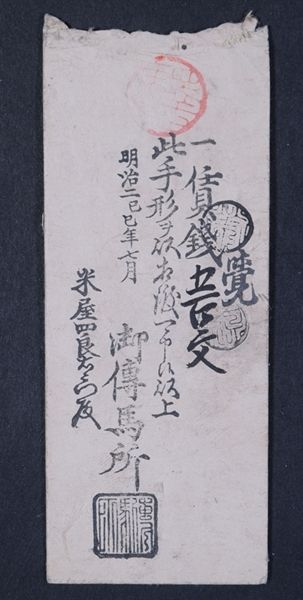 覚
一賃銭五百文
此手形ヲ以相渡可申候以上
明治二己巳年七月
御傳馬所
米屋四郎右衛門殿